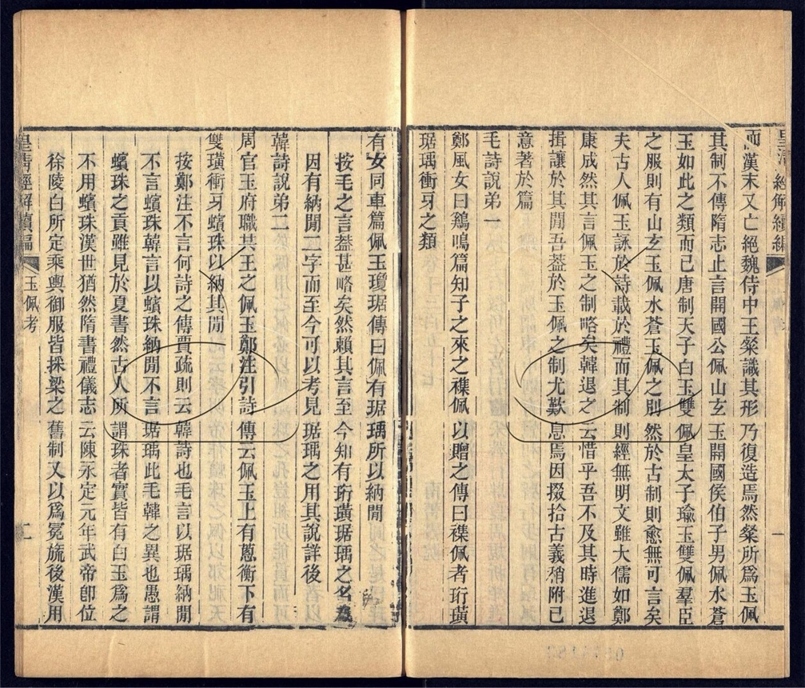 皇清經解續編
而漢末又亡絕魏侍中王粲識其形乃復造焉然粲所爲玉佩
其制不傳隋志止言開國公佩山玄玉開國侯伯子男佩水蒼
玉如此之類而已唐制天子白玉雙佩皇太子瑜玉雙佩羣臣
之服則有山玄玉佩水蒼玉佩之別然於古制則愈無可言矣
夫古人佩玉詠於詩載於禮而其制則經無明文雖大儒如鄭
康成然其言佩玉之制略矣韓退之云惜乎吾不及其時進退
揖讓於其閒吾蓋於玉佩之制尤歎息焉因掇拾古義稍附己
意著於篇
毛詩說弟一
鄭風女曰鷄鳴篇知子之來之襍佩以贈之傳曰襍佩者珩璜
琚瑀衝牙之類
有女同車篇佩玉瓊琚傳曰佩有琚瑀所以納閒
按毛之言蓋甚略矣然賴其言至今知有珩璜琚瑀之名爲
因有納閒二字而至今可以考見琚瑀之用其說詳後
韓詩說弟二
周官玉府職共王之佩玉鄭注引詩傳云佩玉上有蔥衡下有
雙璜衝牙蠙珠以納其閒
按鄭注不言何詩之傳賈疏則云韓詩也毛言以琚瑀納閒
不言蠙珠韓言以蠙珠納閒不言琚瑀此毛韓之異也愚謂
蠙珠之貢雖見於夏書然古人所謂珠者實皆有白玉爲之
不用蠙珠漢世猶然隋書禮儀志云陳永定元年武帝卽位
徐陵白所定乘輿御服皆採梁之舊制又以爲冕旒後漢用
皇清經解續編
玉佩考
二